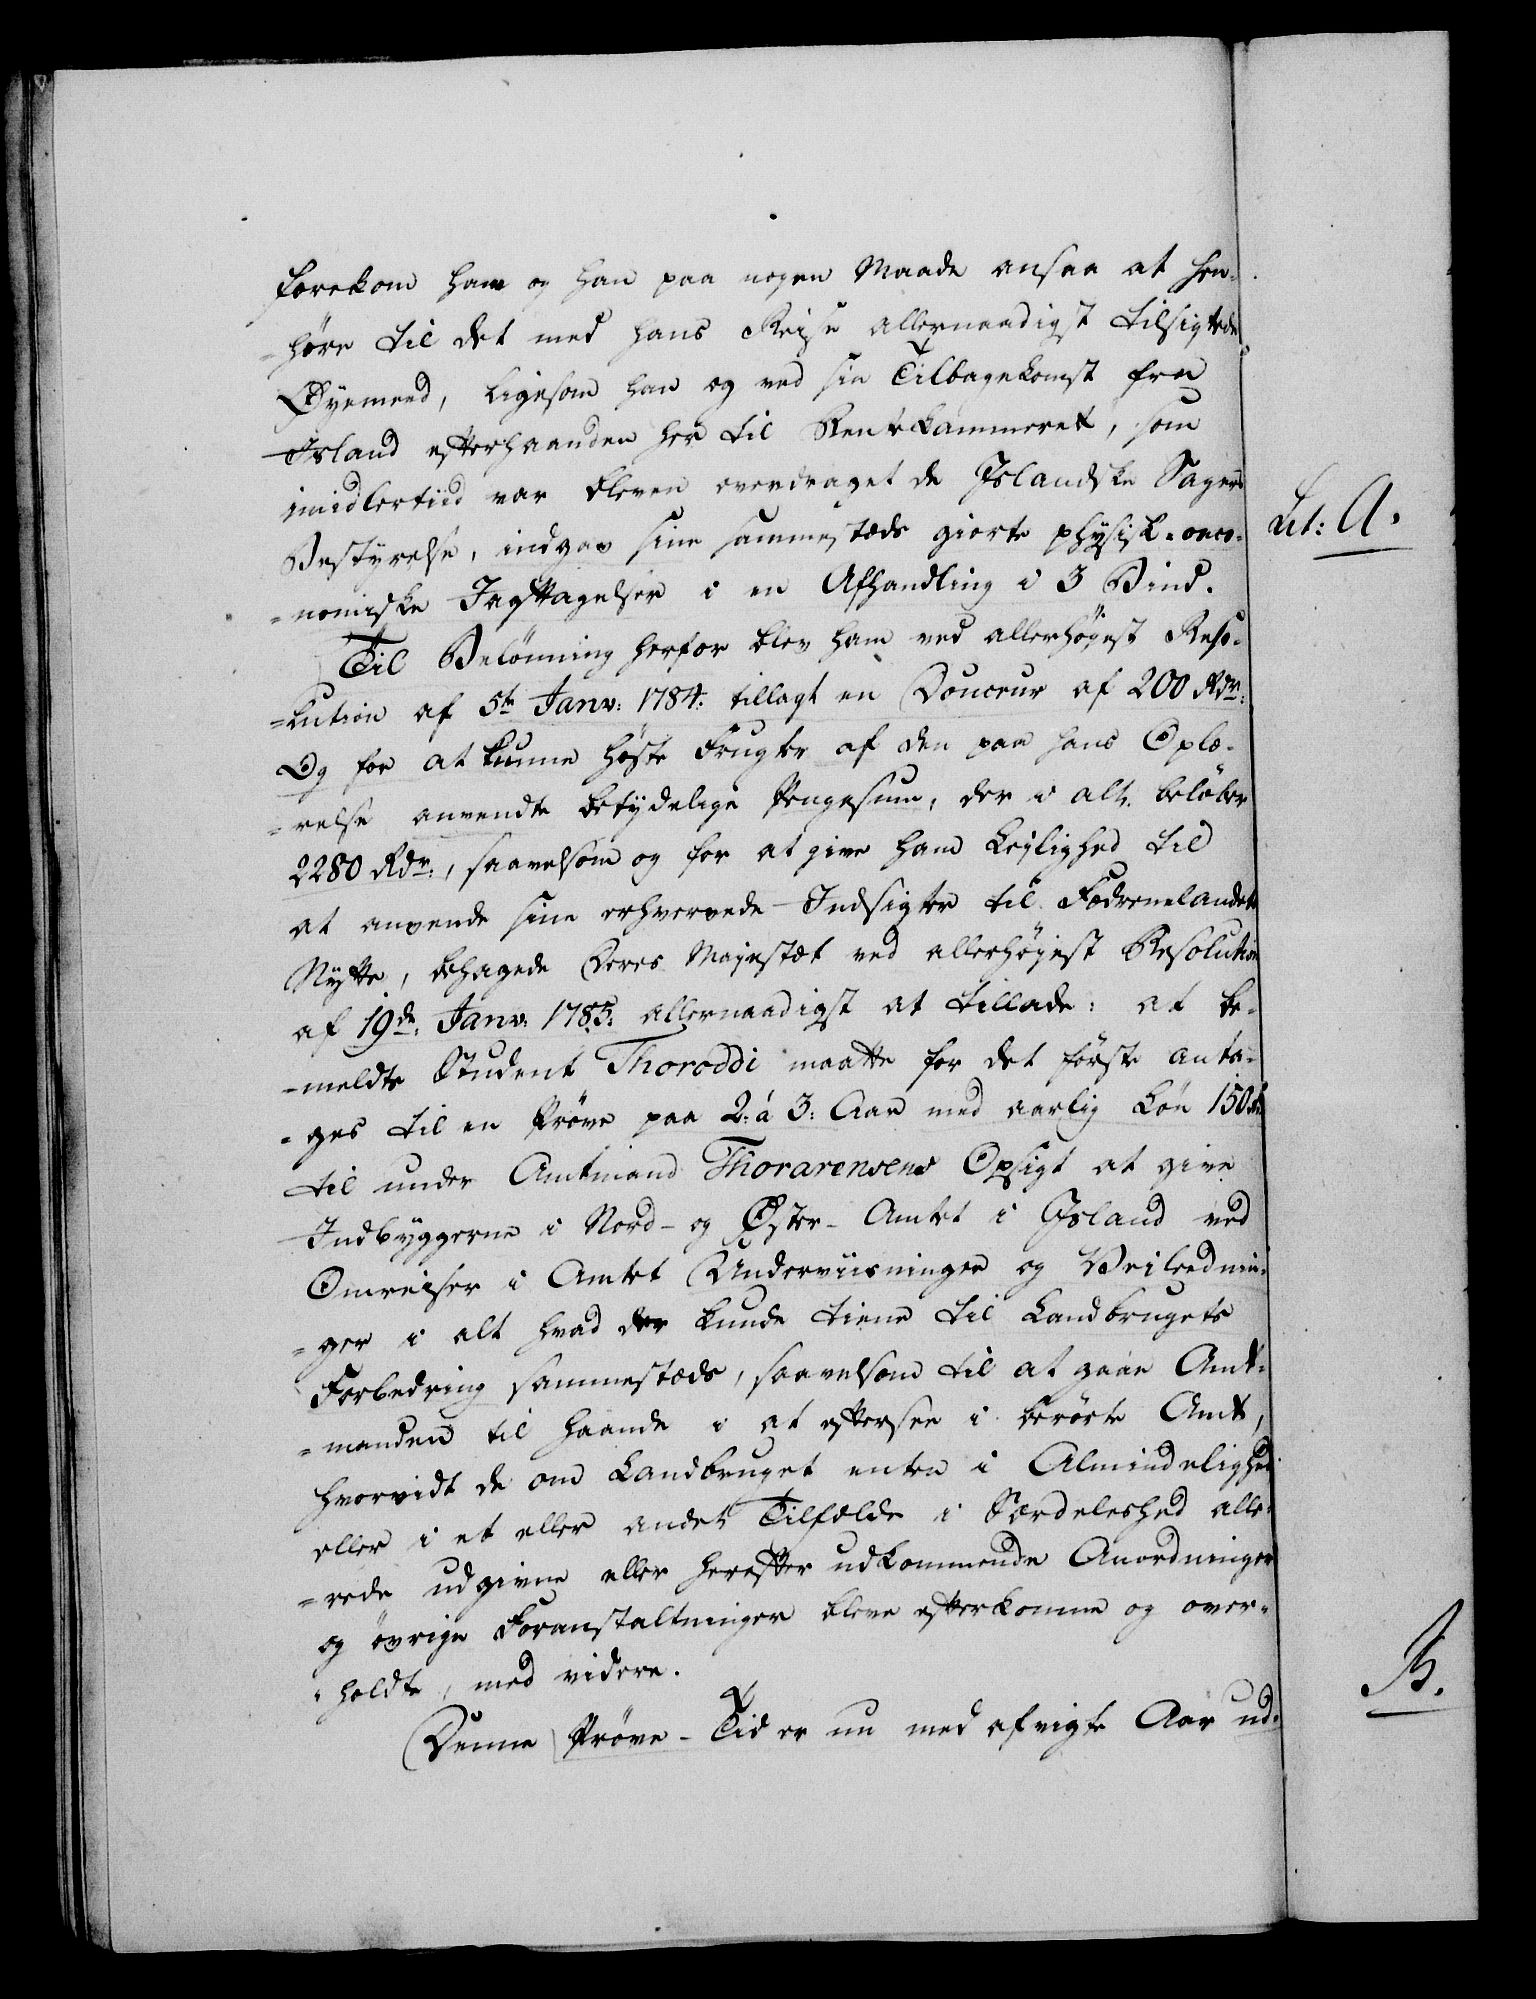 forekom ham og han paa nogen Maade ansaa at hen-
=høre til det med hans Reise allernaadigst tilsigtede
Øyemeed, ligesom han og ved sin Tilbagekomst fra
Island efterhaanden her til Rentekammeret, som
imidlertiid var bleven overdraget de Islandske Sagers
Bestyrelse, indgav sine sammestæds giorte physisk-oeco-
=nomiske Iagttagelser i en Afhandling i 3 Bind.
Lit: A.
Til Belønning herfor blev ham ved allerhøyest Reso-
=lution af 5te Janv: 1784. tillagt en Douceur af 200 Rdr:
Og for at kunne høste Frugter af den paa hans Oplæ-
=relse anvendte betydelige Pengesum, der i alt beløber
2280 Rdr:, saavelsom og for at give ham Leylighed til
at anvende sine erhvervede Indsigter til Fædrenelandets
Nytte, behagede Deres Majestæt ved allerhøyest Resolution
af 19de Janv: 1785: allernaadigst at tillade: at be-
=meldte Student Thoroddi maatte for det første anta-
=ges til en Prøve paa 2: à 3: Aar med aarlig Løn 150 Rdr
til under Amtmand Thorarensens Opsigt at give
Indbyggerne i Nord- og Øster-Amtet i Island ved
Omreiser i Amtet Underviisninger og Veileednin-
=ger i alt hvad der kunde tiene til Landbrugets
Forbedring sammestæds, saavelsom til at gaae Amt-
=manden til Haande i at eftersee i berørte Amt,
hvorvidt de om Landbruget enten i Almindelighed
eller i et eller andet Tilfælde i Særdeleshed alle-
=rede udgivne eller herefter udkommende Anordninger
og øvrige Foranstaltninger bleve efterkomne og over-
=holdte, med videre.
B.
Denne Prøve-Tid er nu med afvigte Aar ud-